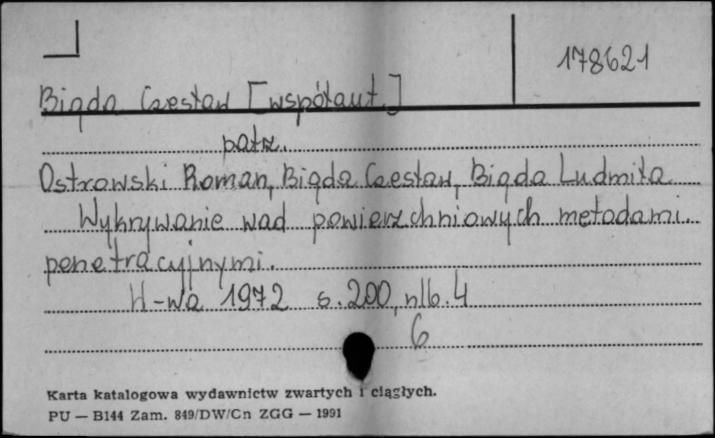 178621
Bigda Czesław [współaut.]
patrz.
Ostrowski Roman, Bigda Czesław, Bigda Ludmiła
Wykrywanie wad powierzchniowych metodami
penetracyjnymi.
W-wa 1972 s. 200, nlb. 4
6
Karta katalogowa wydawnictw zwartych i ciągłych.
PU — B144 Zam. 849/DW/Cn ZGG — 1991